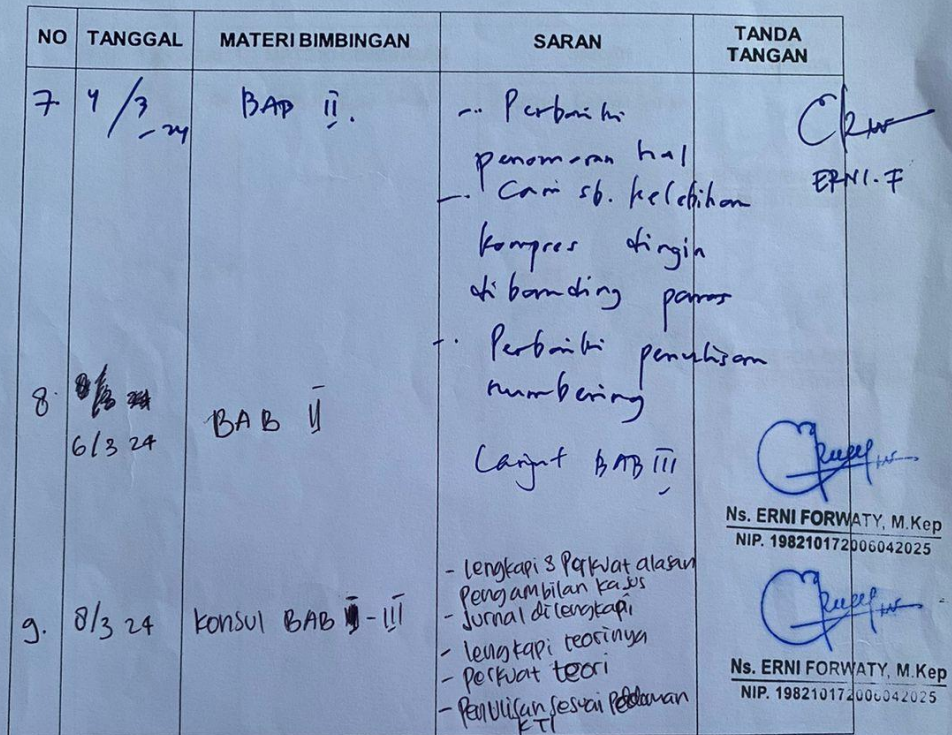 NO TANGGAL MATERI BIMBINGAN SARAN TANDA TANGAN
7 4/3-24 BAB II. -. Perbaiki
penomoran hal
ERNI.F
-. Cari sb. kelebihan
kompres dingin
dibanding panas
-. Perbaiki penulisan
numbering
8. 6/3 24 BAB II
Lanjut BAB III
Ns. ERNI FORWATY, M.Kep
NIP. 198210172006042025
9. 8/3 24 Konsul BAB - III
- lengkapi & Perkuat alasan
Pengambilan kasus
- Jurnal dilengkapi
- lengkapi teorinya
- perkuat teori
- Penulisan sesuai Pedoman
KTI
Ns. ERNI FORWATY, M.Kep
NIP. 198210172006042025